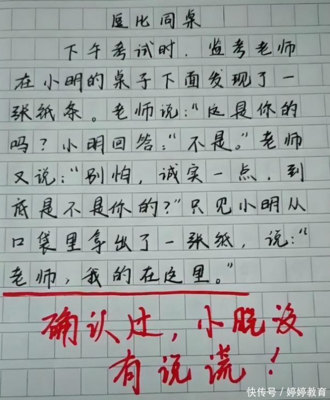 医比同桌
下午考试时，监考老师
在小明的桌子下面发现了一
张纸条。老师说：“这是你的
吗？小明回答：“不是。”老师
又说：“别怕，诚实一点，到
底是不是你的？”只见小明从
口袋里拿出了一张纸，说：“
老师，我的在这里。”
确认过，小没
有说谎！
快传号/婷婷教育